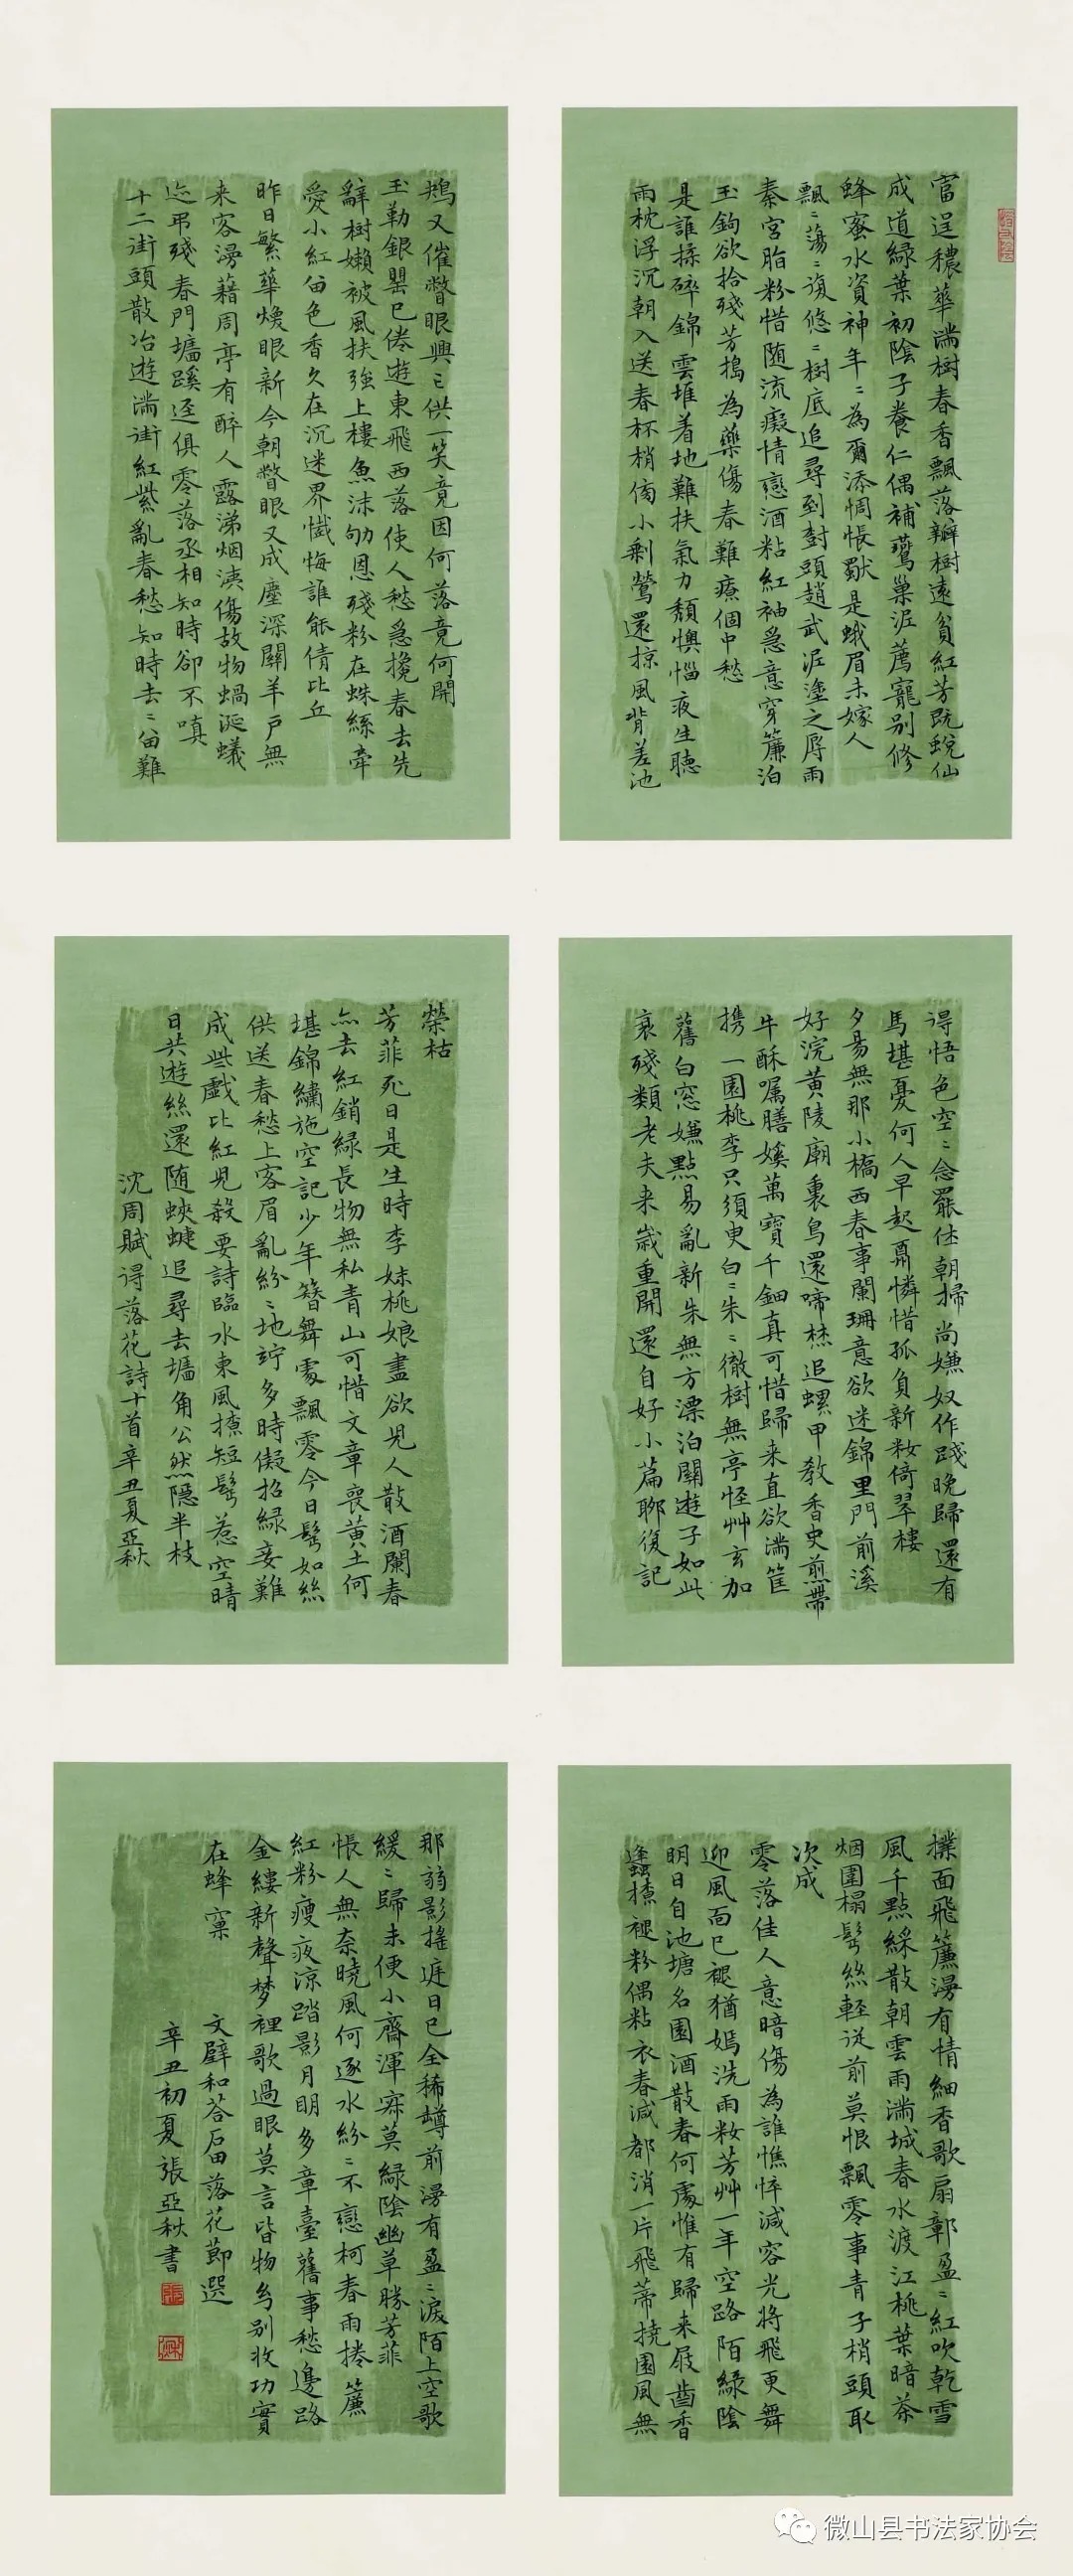 富逞穠華滿樹春香飄落瓣樹遠貧紅芳既蛻仙
成道綠葉初陰子養仁偶補鸎巢泥薦寵别修
蜂蜜水資神年〻為爾添惆悵獸是蛾眉未嫁人
飄〻蕩〻復悠〻樹底追尋到對頭趙武泥塗之辱雨
秦宮脂粉惜随流癡情戀酒粘紅袖急意穿簾泊
玉鉤欲拾殘芳搗為藥傷春難療個中愁
是誰揉碎錦雲堆着地難扶氣力頹懊惱夜生聽
雨枕浮沉朝入送春杯梢傋小剩鶯還掠風背差池
鴆又催瞥眼興亡供一笑竟因何落竟何開
玉勒銀罌已倦遊東飛西落使人愁急攙春去先
辭樹嬾被風扶強上樓魚沫劬恩殘粉在蛛絲牽
愛小紅留色香久在沉迷界懺悔誰能倩比丘
昨日繁華煥眼新今朝瞥眼又成塵深關羊戶無
来客漫藉周亭有醉人露涕烟洟傷故物蝸涎蟻
迹弔殘春門墻蹊逕俱零落丞相知時卻不嗔
十二街頭散冶遊滿街紅紫亂春愁知時去〻留難
得悟色空〻念罷休朝掃尚嫌奴作踐晚歸還有
馬堪憂何人早起鬲憐惜孤負新妝倚翠樓
夕昜無那小橋西春事闌珊意欲迷錦里門前溪
好浣黄陵廟裏鳥還啼焚追螺甲教香史煎帶
牛酥囑膳媄萬寶千鈿真可惜歸来直欲滿筐
携 一園桃李只須臾白〻朱〻徹樹無亭怪艸玄加
舊白窓嫌點易亂新朱無方漂泊關遊子如此
衰殘類老夫来歲重開還自好小篇聊復記
榮枯
芳菲死日是生時李妹桃娘盡欲児人散酒闌春
亦去紅銷綠長物無私青山可惜文章喪黄土何
堪錦繡施空記少年簪舞處飄零今日髩如絲
供送春愁上客眉亂紛〻地竚多時儗招綠妾難
成些戲比紅児殺要詩臨水東風撩短髩惹空晴
日共遊絲還随蛺蝶追尋去墻角公然隱半枝
沈周賦得落花詩十首辛丑夏亞秋
撲面飛簾漫有情細香歌扇鄣盈〻紅吹乾雪
風千點綵散朝雲雨滿城春水渡江桃葉暗茶
烟圍榻髩絲輕從前莫恨飄零事青子梢頭取
次成
零落佳人意暗傷為誰憔悴減容光将飛更舞
迎風面已褪猶嫣洗雨妝芳艸一年空路陌綠陰
明日自池塘名園酒散春何處惟有歸来屐齒香
逢蠭撩褪粉偶粘衣春減都消一片飛蒂撓園風無
那蒻影搖庭日已全稀罇前漫有盈〻淚陌上空歌
緩〻歸未便小齋渾寂莫綠陰幽草勝芳菲
悵人無奈曉風何逐水紛〻不戀柯春雨捲簾
紅粉瘦夜涼踏影月明多章臺舊事愁邊路
金縷新聲梦裡歌過眼莫言皆物刍别牧功實
在蜂窠
文壁和荅石田落花莭選
辛丑初夏張亞秋書
微山县书法家协会